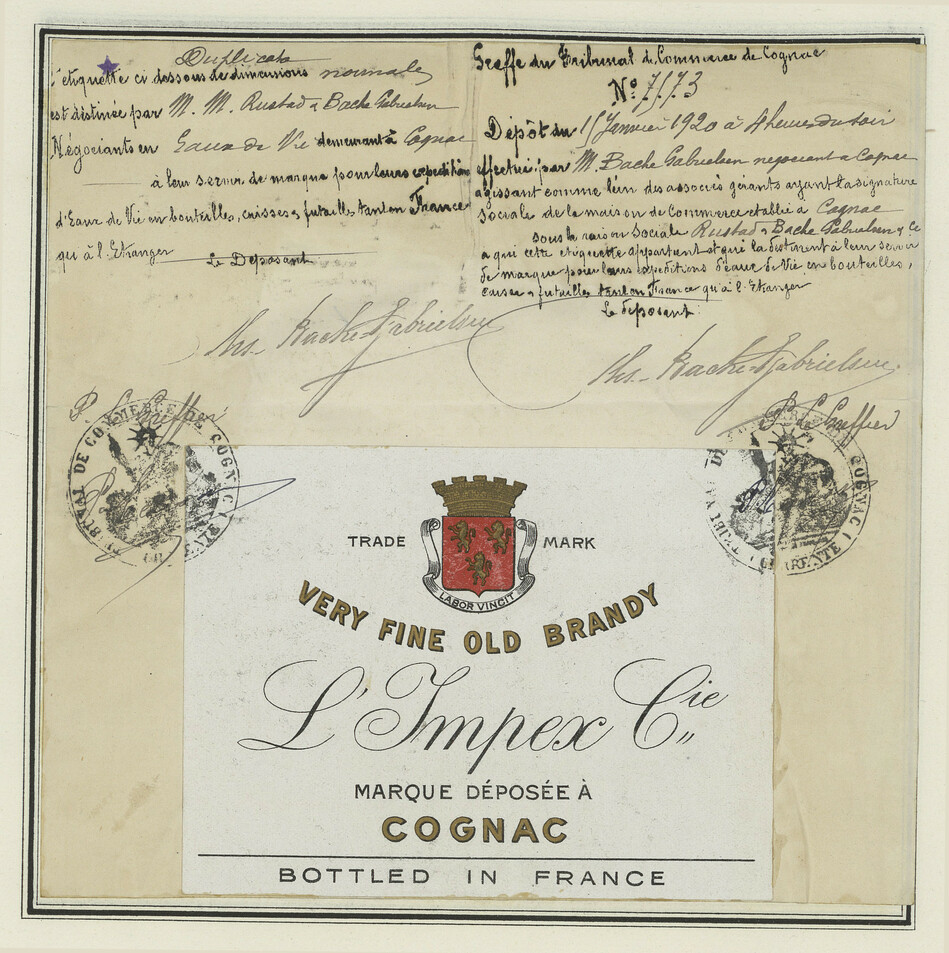 Duplicata
L'étiquette ci dessous de dimensions normales
est destinée par M. M. Rustad & Bache Gabrielsen
Négociants en Eaux de Vie demeurant à Cognac
à leur servir de marque pour leurs expéditions
d'Eaux de Vie en bouteilles, caisses & futailles tant en France
qu'à l'Etranger
Le Déposant
Ths. Bache-Gabrielsen
P. Le Greffier
Greffe du Tribunal de Commerce de Cognac
N° 7173
Dépôt du 15 Janvier 1920 à 4 heures du soir
effectué par M. Bache Gabrielsen négociant à Cognac
agissant comme l'un des associés gérants ayant la signature
sociale de la maison de Commerce établie à Cognac
sous la raison sociale Rustad & Bache Gabrielsen & Cie
à qui cette étiquette appartient et qui la destinent à leur servir
de marque pour leurs expéditions d'eaux de Vie en bouteilles,
caisses & futailles tant en France qu'à l'Etranger
Le déposant
Ths. Bache-Gabrielsen
P. Le Greffier
TRIBUNAL DE COMMERCE DE COGNAC
TRIBUNAL DE COMMERCE DE COGNAC (CHARENTE)
TRADE MARK
LABOR VINCIT
VERY FINE OLD BRANDY
L'Impex Cie
MARQUE DÉPOSÉE À
COGNAC
BOTTLED IN FRANCE